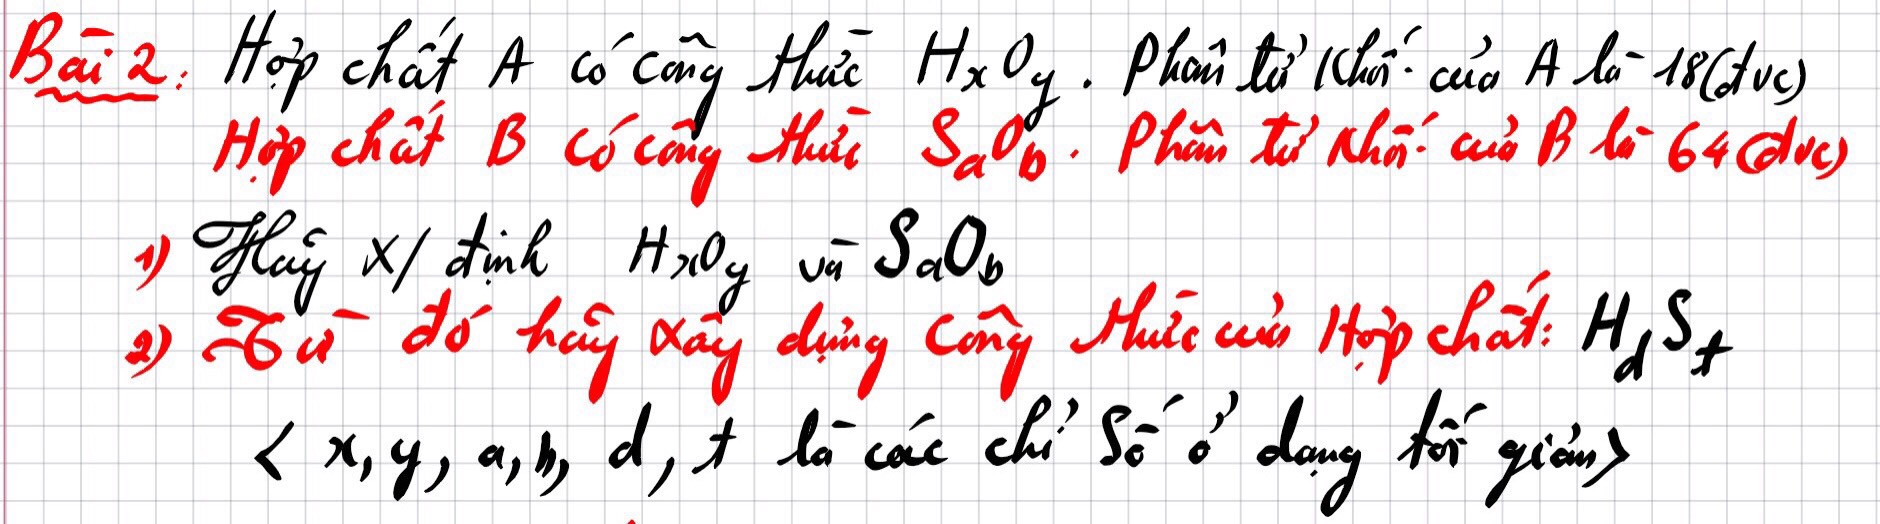 Bài 2: Hợp chất A có công thức HxOy. Phân tử khối của A là 18(đvc)
Hợp chất B có công thức SaOb. Phân tử khối của B là 64(đvc)
1) Hãy x/định HxOy và SaOb
2) Từ đó hãy xây dựng công thức của Hợp chất: HdSt
< x, y, a, b, d, t là các chỉ số ở dạng tối giản>